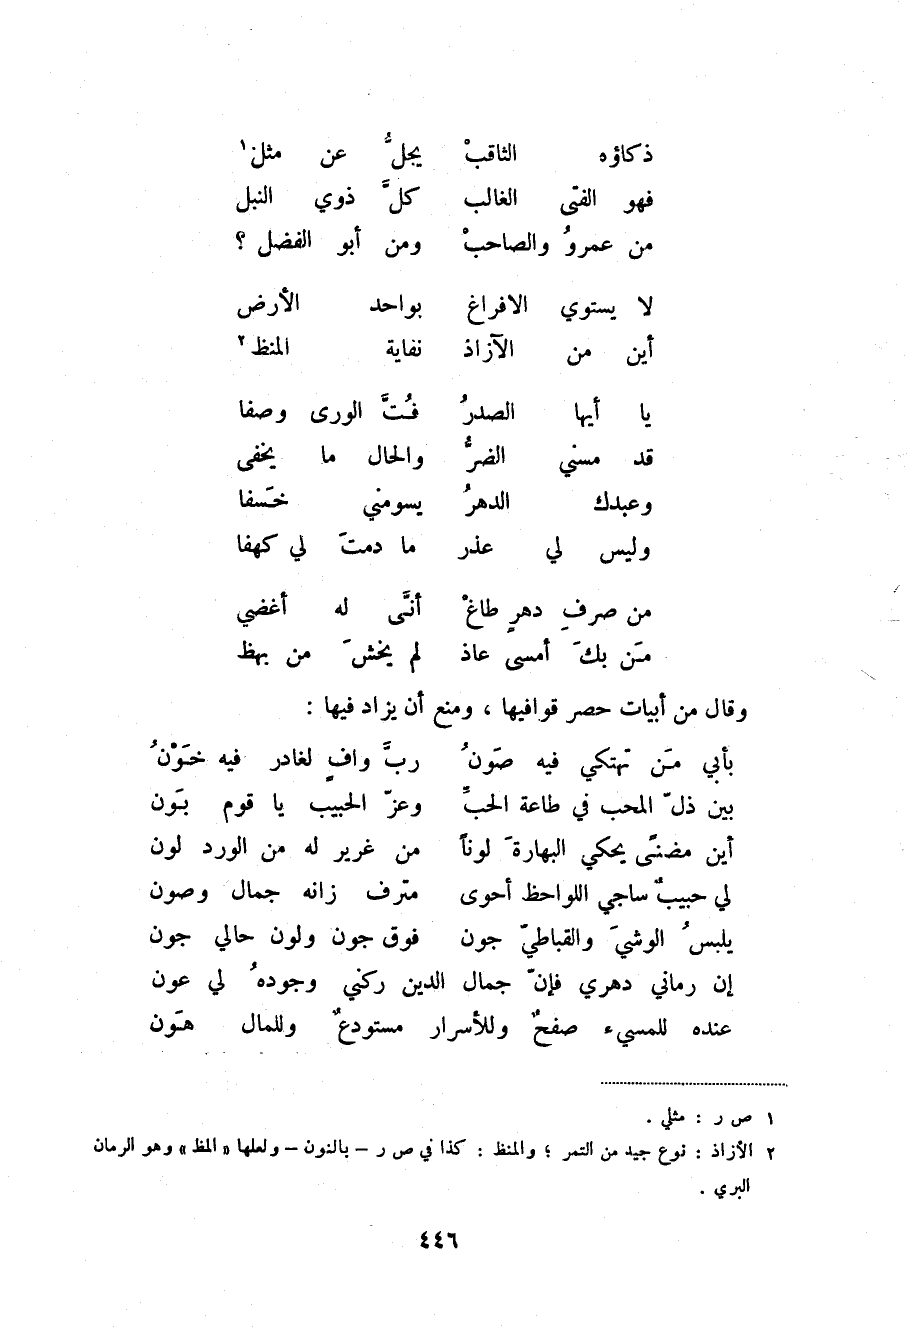 ذكاؤه الثاقبْ يجلُّ عن مثل١
فهو الفتى الغالب كلَّ ذوي النبل
من عمروُ والصاحبْ ومن أبو الفضل ؟
لا يستوي الافراغ بواحد الأرض
أين من الآزاذ نفاية المنظ٢
يا أيها الصدرُ فُتَّ الورى وصفا
قد مسني الضرُّ والحال ما يخفى
وعبدك الدهرُ يسومني خَسفا
وليس لي عذر ما دمتَ لي كهفا
من صرفِ دهرٍ طاغْ أنَّى له أغضي
مَن بكَ أمسى عاذ لم يخشَ من بهظ
وقال من أبيات حصر قوافيها ، ومنع أن يزاد فيها :
بأبي مَن تهتكي فيه صَونُ ربَّ وافٍ لغادر فيه خَوْنُ
بين ذلّ المحب في طاعة الحبِّ وعزّ الحبيب يا قوم بَون
أين مضنًى يحكي البهارةَ لوناً من غرير له من الورد لون
لي حبيبٌ ساجي اللواحظ أحوى مترف زانه جمال وصون
يلبسُ الوشيَ والقباطيّ جون فوق جون ولون حالي جون
إن رماني دهري فإنّ جمال الدين ركني وجودهُ لي عون
عنده للمسيء صفحٌ وللأسرار مستودعٌ وللمال هَون
١ ص ر : مثلي .
٢ الآزاذ : نوع جيد من التمر ؛ والمنظ : كذا في ص ر – بالنون – ولعلها « المظ » وهو الرمان
البري .
٤٤٦